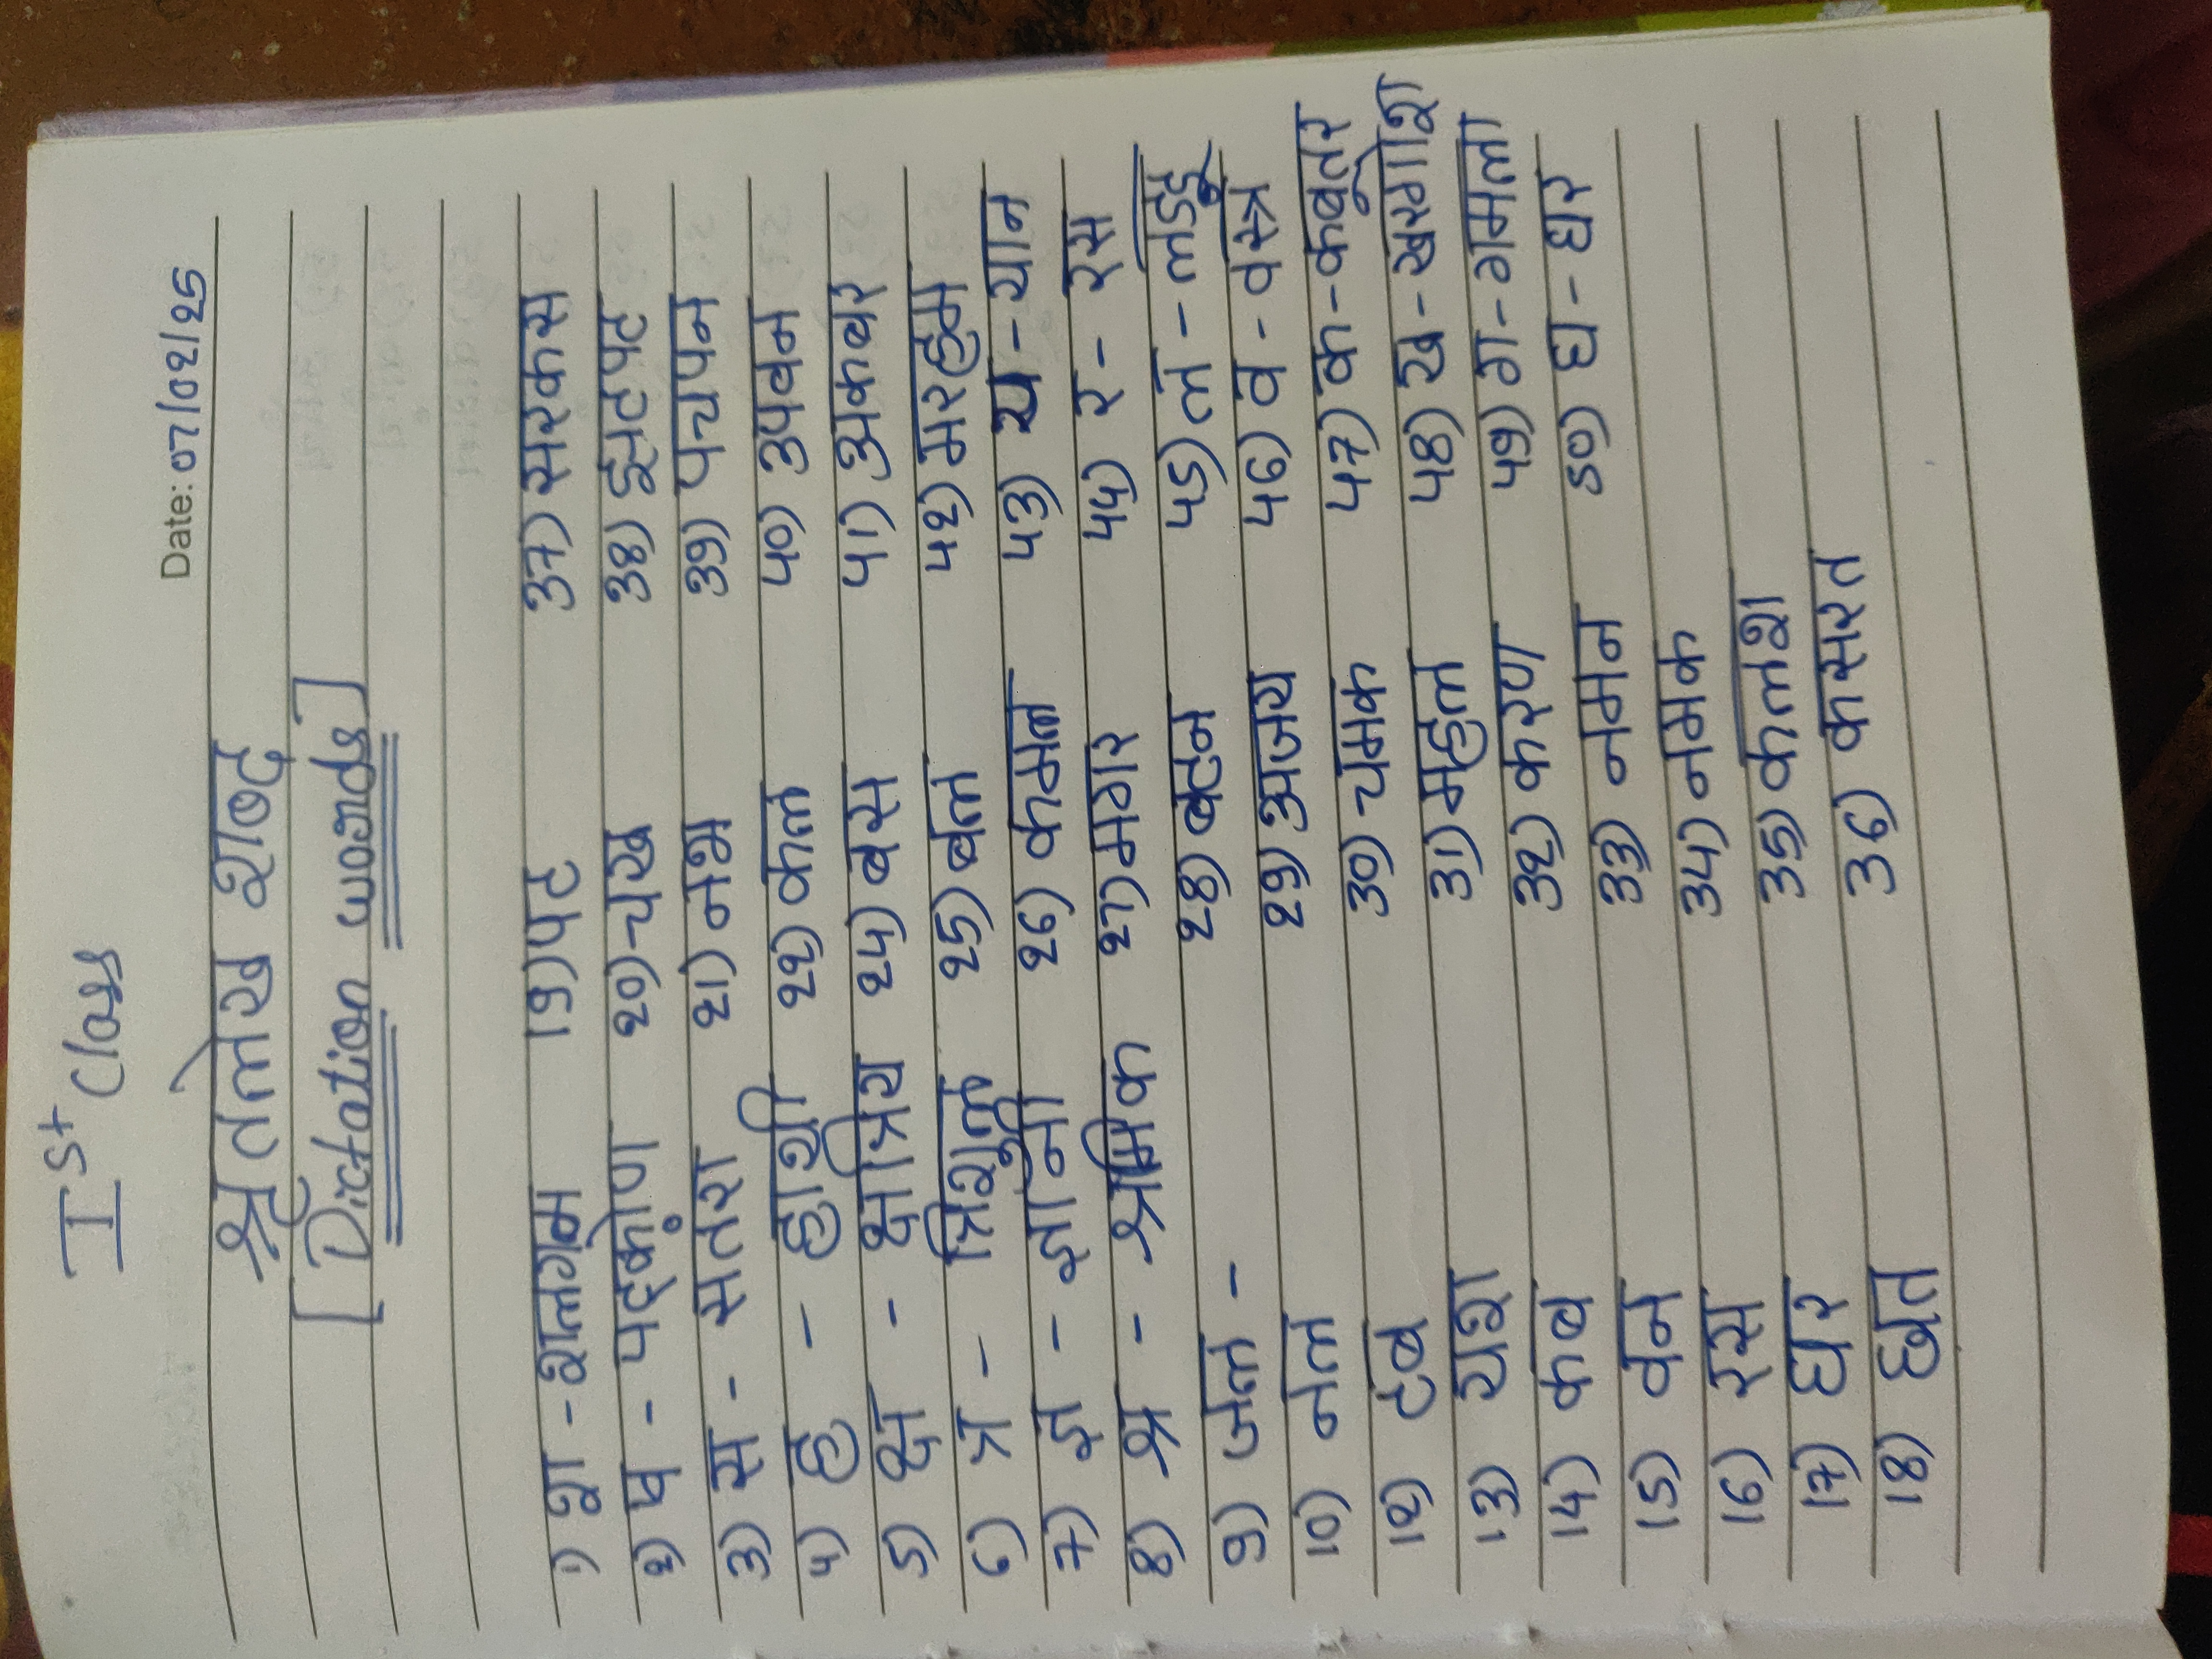 Ist Class
Date: 07/02/25
श्रुतलेख शब्द
[Dictation words]
1) श - शलगम
2) ष - षट्कोण
3) स - संतरा
4) ह - हाथी
5) क्ष - क्षत्रिय
6) त्र - त्रिशूल
7) ज्ञ - ज्ञानी
8) श्र - श्रमिक
9) जल -
10) नल
12) टब
13) यश
14) कब
15) वन
16) रस
17) घर
18) छत
19) पट
20) चख
21) नभ
22) कल
24) बस
25) बल
26) कमल
27) मगर
28) बहन
29) अजय
30) चमक
31) महल
32) करण
33) नमन
34) नमक
35) कलश
36) कसरत
37) सरकस
38) झटपट
39) पचपन
40) उपवन
41) अकबर
42) मरहम
43) य - यान
44) र - रस
45) ल - लड्डू
46) व - वस्त्र
47) क - कबूतर
48) ख - खरगोश
49) ग - गमला
50) घ - घर